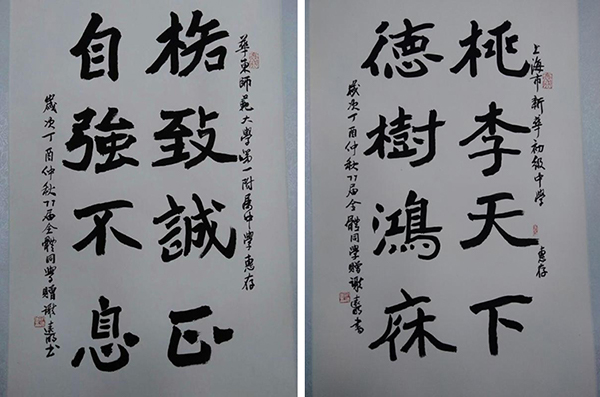 華東師範大學第一附属中學惠存
格致誠正
自強不息
歲次丁酉仲秋77届全體同學贈 谢书
上海市新華初級中學 惠存
桃李天下
德樹鴻庥
歲次丁酉仲秋77届全體同学贈 谢書